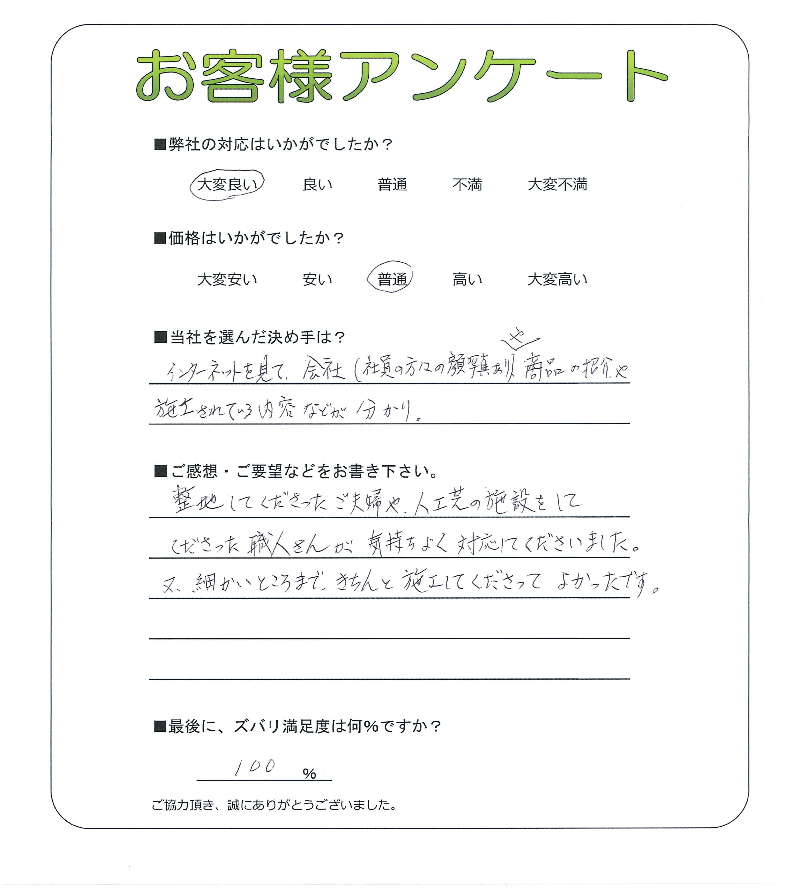 お客様アンケート
■弊社の対応はいかがでしたか？
大変良い 良い 普通 不満 大変不満
■価格はいかがでしたか？
大変安い 安い 普通 高い 大変高い
■当社を選んだ決め手は？
や
インターネットを見て、会社(社員の方々の顔写真あり)商品の紹介や
施工されている内容などが分かり。
■ご感想・ご要望などをお書き下さい。
整地してくださったご夫婦や、人工芝の施設をして
くださった職人さんが気持ちよく対応してくださいました。
又、細かいところまで、きちんと施工してくださってよかったです。
■最後に、ズバリ満足度は何％ですか？
100 %
ご協力頂き、誠にありがとうございました。